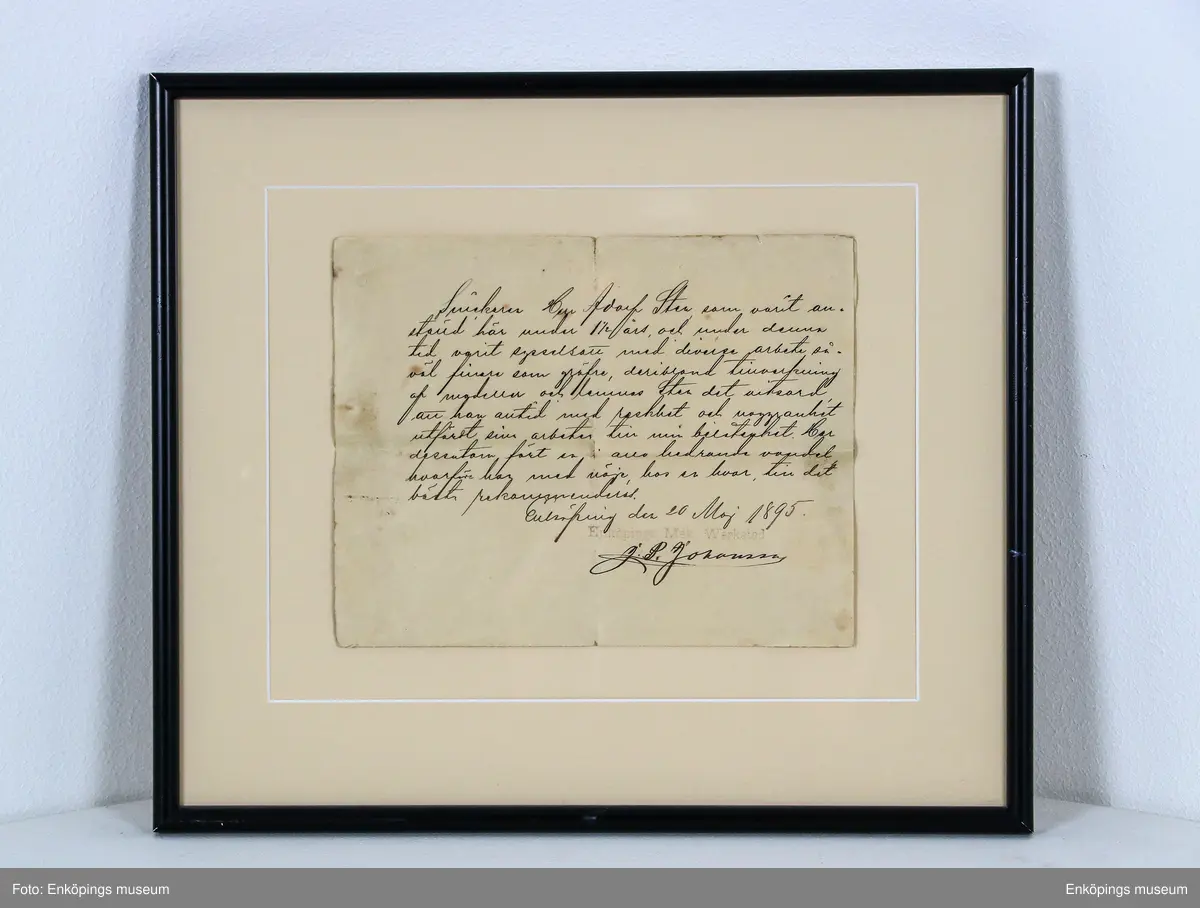 Snickaren Herr Adolf Sten, som varit an-
stäld här under 1 1/2 års, och under denna
tid varit sysselsatt med diverse arbete så-
väl finare som gröfre, deribland tillverkning
af modeller och lemnas Sten det vitsord,
att han alltid med raskhet och noggranhet
utfördt sina arbeten till min belåtenhet. Har
dessutom fört en i allo hedrande vandel
hvarför han med nöje, hos en hvar, till det
bästa rekommenderas.
Enköping den 20 Maj 1895.
Enköpings Mek. Werkstad
J. P. Johansson
Foto: Enköpings museum
Enköpings museum